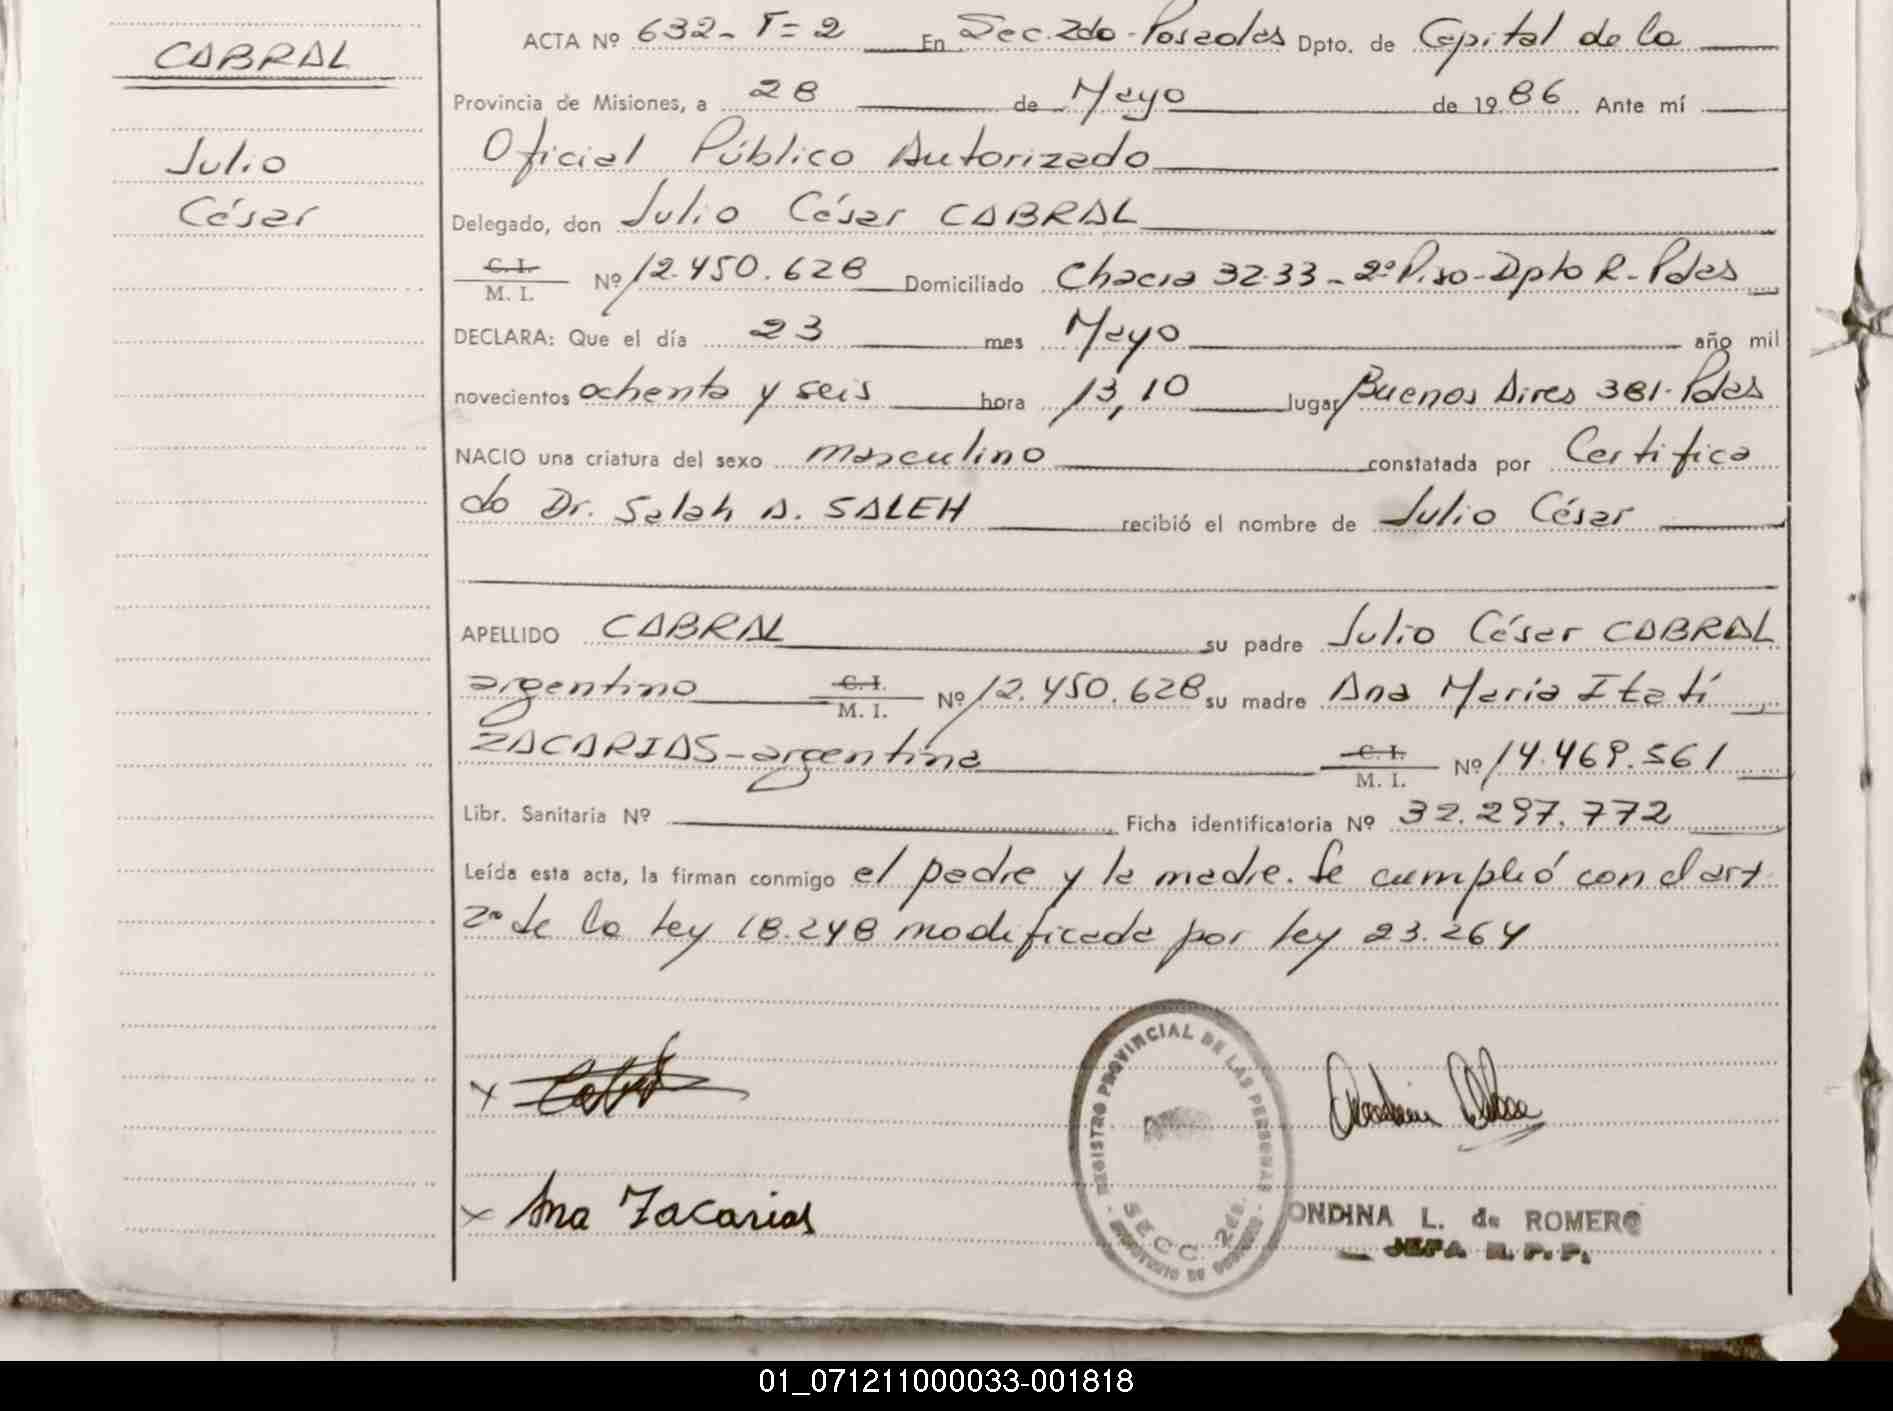 CABRAL
Julio
César
ACTA Nº 632- T=2 En Sec. 2do - Posadas Dpto. de Capital de la
Provincia de Misiones, a 28 de Mayo de 1986 Ante mí
Oficial Público Autorizado
Delegado, don Julio César CABRAL
C. I.
M. I. Nº 12.450.628 Domiciliado Chacra 32-33 - 2º Piso - Dpto R - Pdas
DECLARA: Que el día 23 mes Mayo año mil
novecientos ochenta y seis hora 13,10 lugar Buenos Aires 381 - Pdas
NACIO una criatura del sexo masculino constatada por Certifica
do Dr. Salah A. SALEH recibió el nombre de Julio César
APELLIDO CABRAL su padre Julio César CABRAL
argentino C. I.
M. I. Nº 12.450.628 su madre Ana María Itatí
ZACARIAS - argentina C. I.
M. I. Nº 14.469.561
Libr. Sanitaria Nº Ficha identificatoria Nº 32.297.772
Leída esta acta, la firman conmigo el padre y la madre. Se cumplió con el art
2º de la Ley 18.248 modificada por ley 23.264
REGISTRO PROVINCIAL DE LAS PERSONAS
SECC. 2da.
x
x Ana Zacarias
ONDINA L. de ROMERO
JEFA R. P. P.
01_071211000033-001818